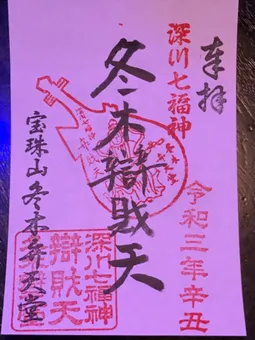 奉拝
深川七福神
令和三年辛丑
冬木辯財天
宝珠山冬木弁天堂
深川七福神
辯財天